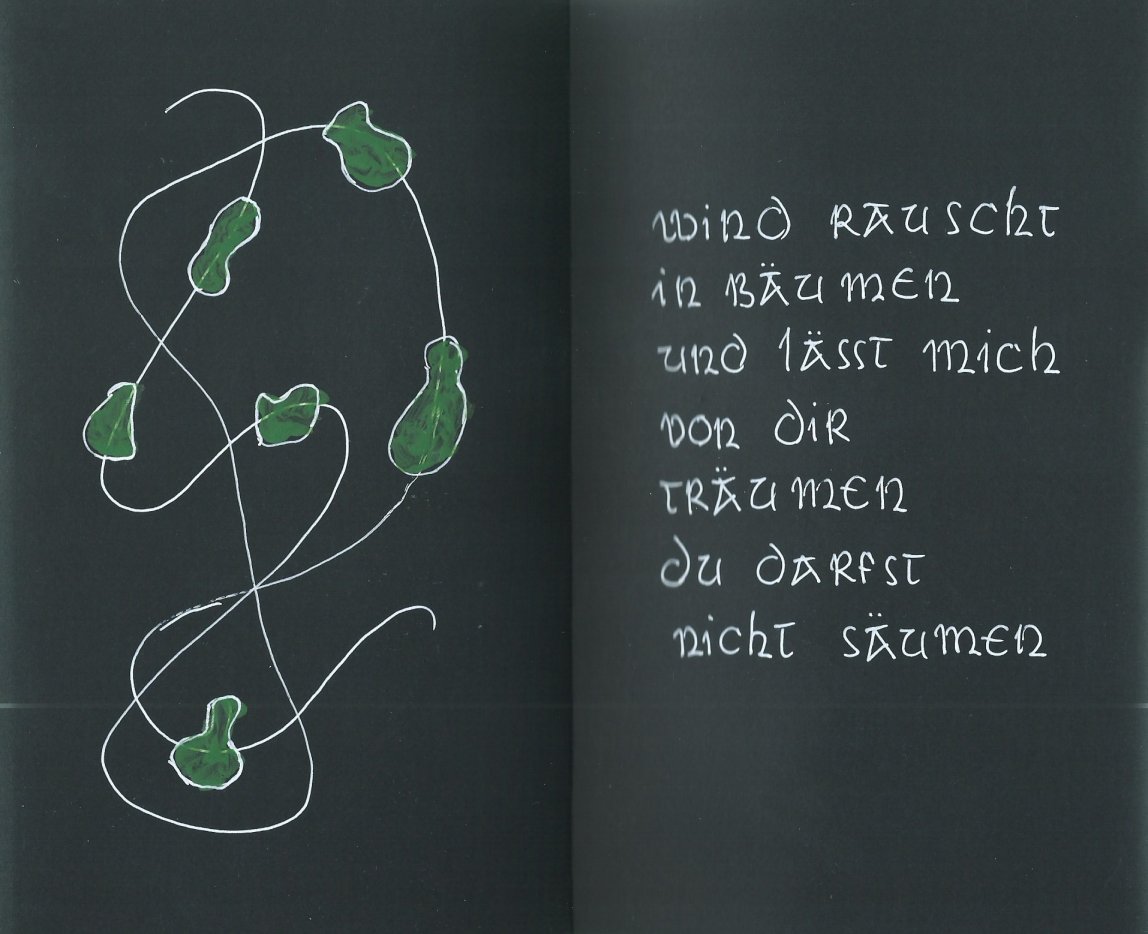 wind rauscht
in bäumen
und lässt mich
von dir
träumen
du darfst
nicht säumen